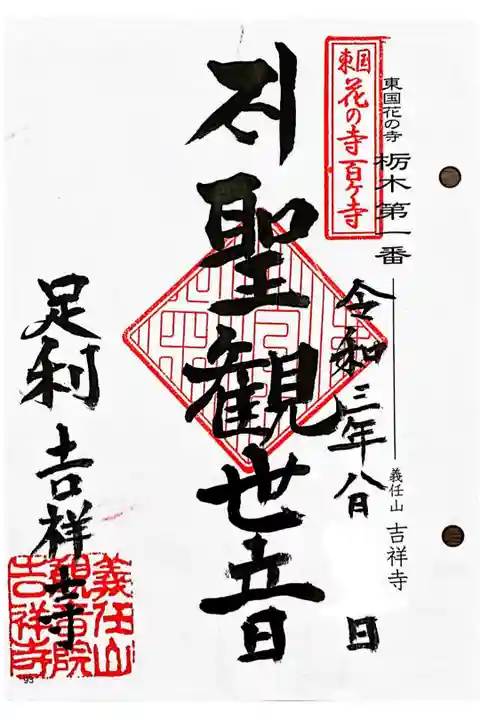 東国花の寺 栃木第一番
義任山 吉祥寺
東国
花の寺百ケ寺
令和三年八月 日
聖観世音
足利吉祥寺
義任山
観音院
吉祥寺
93